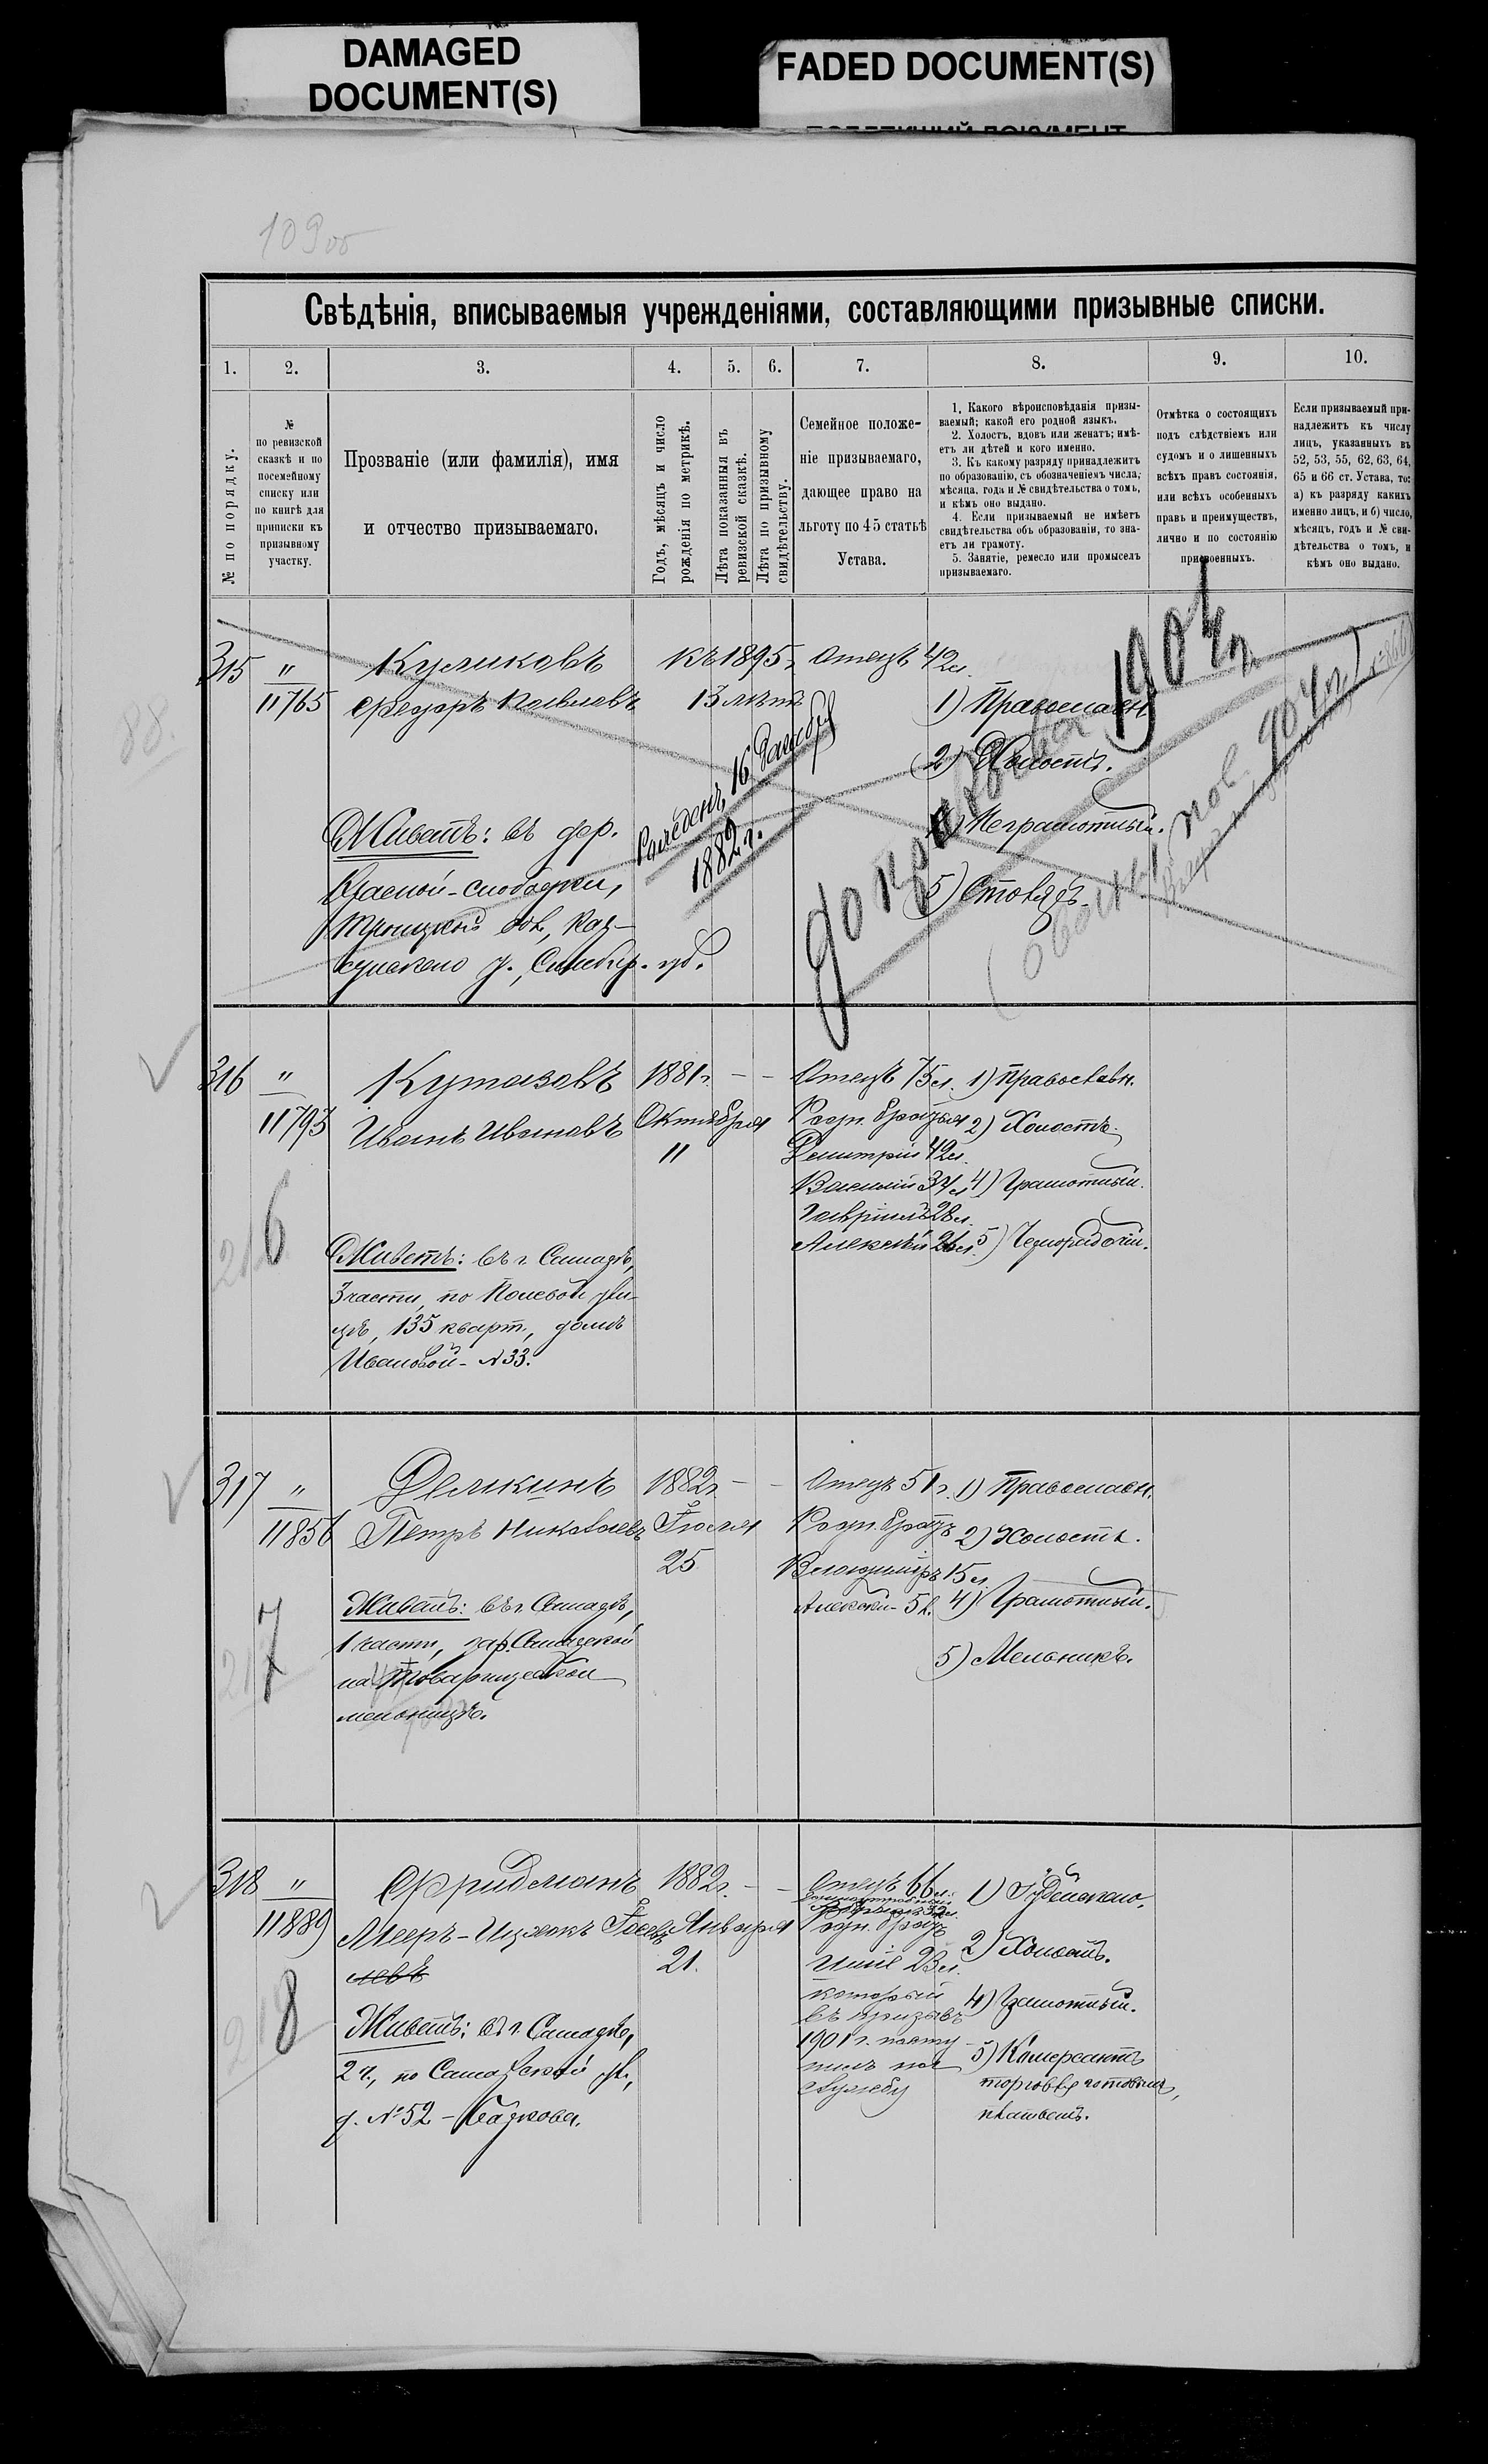 DAMAGED
DOCUMENT(S)
FADED DOCUMENT(S)
109об
88.
Свѣдѣнія, вписываемыя учрежденіями, составляющими призывные списки.
1. 2. 3. 4. 5. 6. 7. 8. 9. 10.
№ по порядку.
№
по ревизской
сказкѣ и по
посемейному
списку или
по книгѣ для
приписки къ
призывному
участку.
Прозваніе (или фамилія), имя
и отчество призываемаго.
Годъ, мѣсяцъ и число
рожденія по метрикѣ.
Лѣта показанныя въ
ревизской сказкѣ.
Лѣта по призывному
свидѣтельству.
Семейное положе-
ніе призываемаго,
дающее право на
льготу по 45 статьѣ
Устава.
1. Какого вѣроисповѣданія призы-
ваемый; какой его родной языкъ.
2. Холостъ, вдовъ или женатъ; имѣ-
етъ ли дѣтей и кого именно.
3. Къ какому разряду принадлежитъ
по образованію, съ обозначеніемъ числа,
мѣсяца, года и № свидѣтельства о томъ,
и кѣмъ оно выдано.
4. Если призываемый не имѣетъ
свидѣтельства объ образованіи, то зна-
етъ ли грамоту.
5. Занятіе, ремесло или промыселъ
призываемаго.
Отмѣтка о состоящихъ
подъ слѣдствіемъ или
судомъ и о лишенныхъ
всѣхъ правъ состоянія,
или всѣхъ особенныхъ
правъ и преимуществъ,
лично и по состоянію
присвоенныхъ.
Если призываемый при-
надлежитъ къ числу
лицъ, указанныхъ въ
52, 53, 55, 62, 63, 64,
65 и 66 ст. Устава, то:
а) къ разряду какихъ
именно лицъ, и б) число,
мѣсяцъ, годъ и № сви-
дѣтельства о томъ, и
кѣмъ оно выдано.
315 "
11765
Куликовъ
Ѳедоръ Павловъ
къ 1895 г.
13 лѣтъ
Рожденъ 16 Декабря
1882 г.
Отецъ 42 л.
1) Православн.
2) Холостъ.
4) Неграмотный.
5) Столяръ.
до призыва 1904 г.
Живетъ: въ дер.
Красной-слободки,
Троицкой вол., Кар-
сунскаго у., Симбир. губ.
316 "
11793
6
Кутазовъ
Иванъ Ивановъ
1881 г. - -
Октября
"
Отецъ 75 л.
Родн. братья
Димитрій 42 л.
Василій 34 л.
Гавріилъ 28 л.
Алексѣй 26 л.
1) Православн.
2) Холостъ.
4) Грамотный.
5) Чернорабочій.
Живетъ: въ г. Самарѣ,
3 части, по Полевой ули-
цѣ, 135 кварт., домъ
Ивановой - № 33.
317 "
11856
217
Деликинъ
Петръ Николаевъ
1882 г. - -
Іюля
25
Отецъ 51 г.
Родн. братъ
Владиміръ 15 л.
Алексѣй - 5 л.
1) Православн.
2) Холостъ.
4) Грамотный.
5) Мельникъ.
Живетъ: въ г. Самарѣ,
1 части, за р. Самаркой
на Товарищеской
мельницѣ.
318 "
11889
218
Фридманъ
Мееръ-Ицхокъ Іосе-
левъ
1882 г. - -
Января
21.
Отецъ 66 л.
Родн. братъ
23 л.
который
въ призывъ
1901 г. посту-
пилъ на
службу
1) Іудейскаго.
2) Холостъ.
4) Грамотный.
5) Комерсантъ
торговля готовымъ
платьемъ.
Живетъ: въ г. Самарѣ,
2 ч., по Самарской ул.,
д. № 52 -